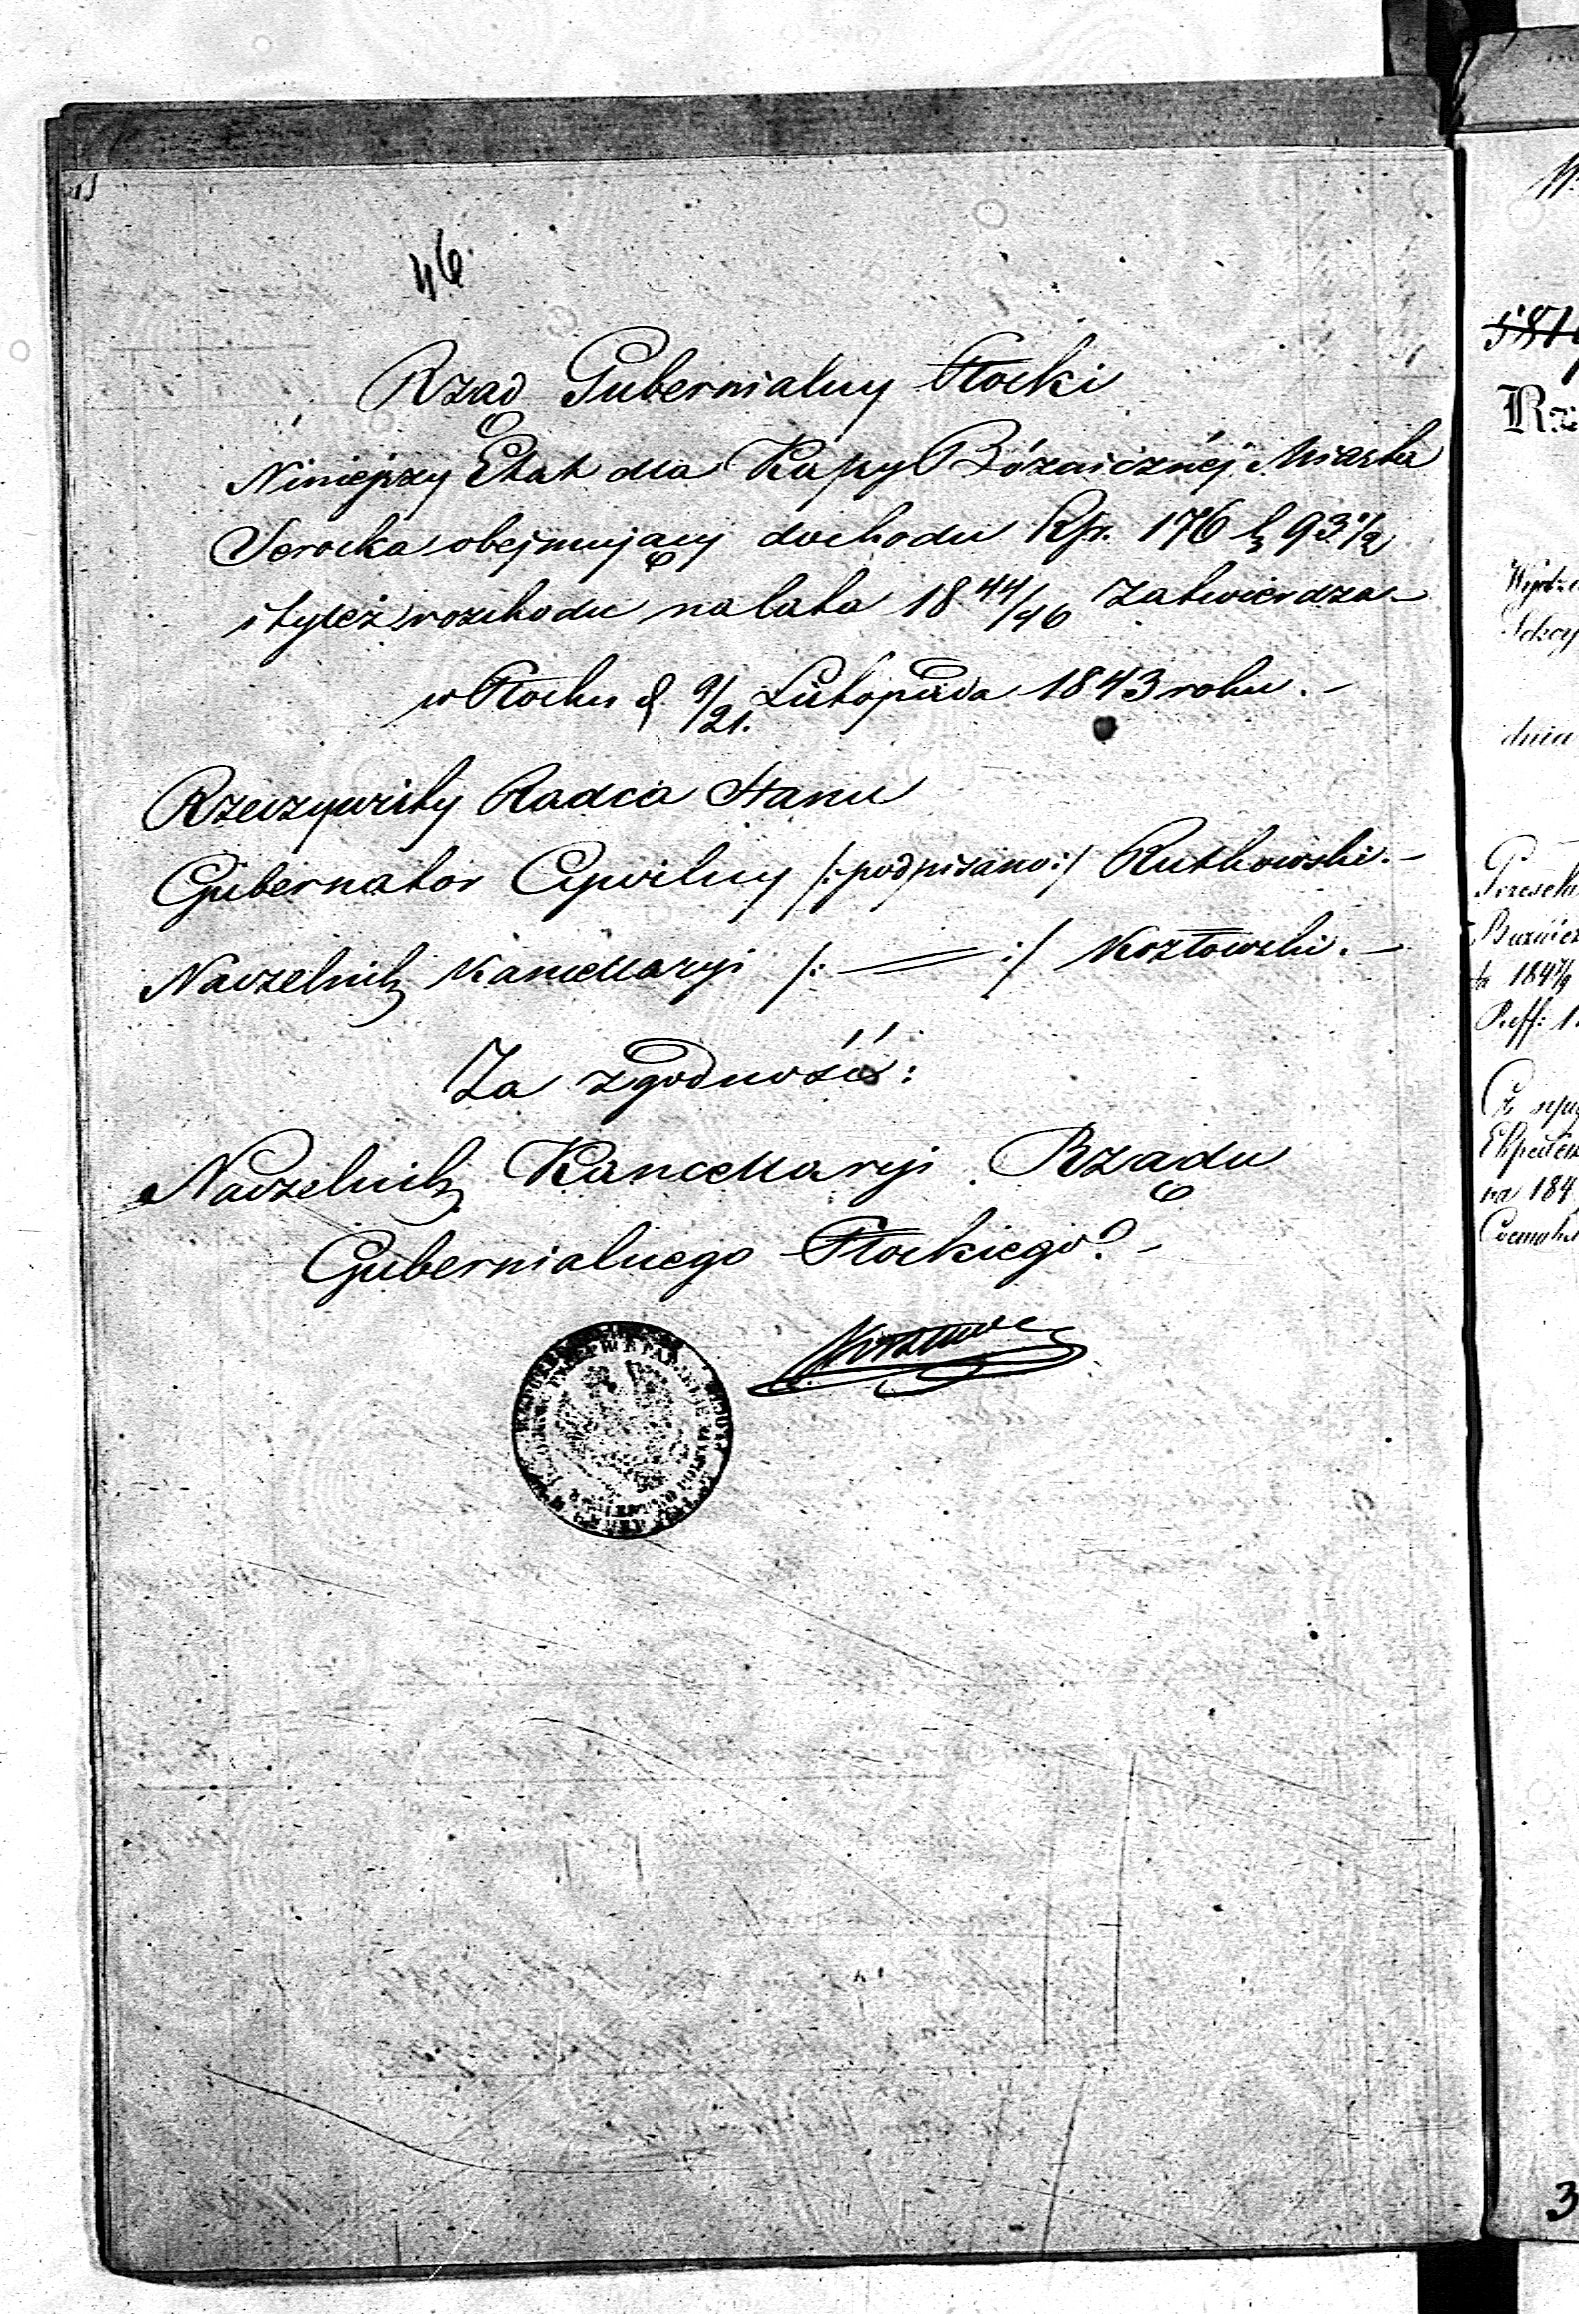 46.
Rząd Gubernialny Płocki
Niniejszy Etat dla Kassy Bóźnicznéj Miasta
Serocka obejmujący dochodu Rsr. 176 k 93 1/2
i tyleż rozchodu na lata 18 44/46 zatwierdza.—
w Płocku d. 9/21. Listopada 1843 roku.—
Rzeczywisty Radca Stanu
Gubernator Cywilny /:podpisano:/ Rutkowski.—
Naczelnik Kancellaryi /: — :/ Kozłowski.—
Za zgodność:
Naczelnik Kancellaryi Rządu
Gubernialnego Płockiego.—
Rz
dnia
na 184
3